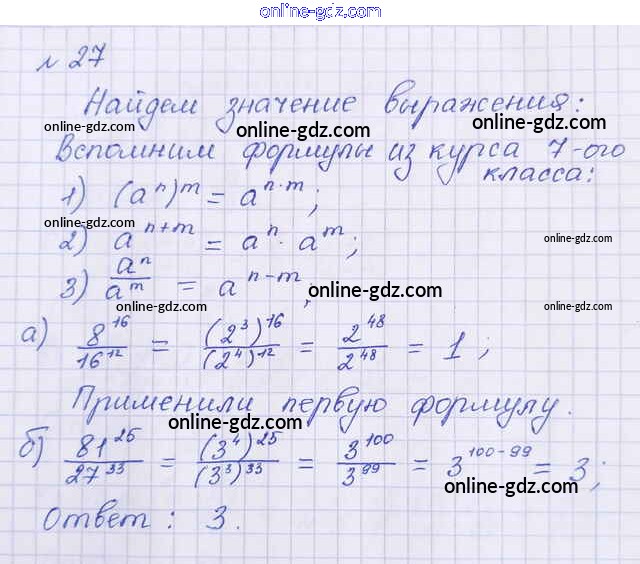 online-gdz.com
№ 27
Найдем значение выражения:
online-gdz.com online-gdz.com online-gdz.com
Вспомним формулы из курса 7-ого
класса:
1) (aⁿ)ᵐ = aⁿ·ᵐ;
online-gdz.com online-gdz.com
2) aⁿ⁺ᵐ = aⁿ · aᵐ;
online-gdz.com
3) aⁿ/aᵐ = aⁿ⁻ᵐ;
online-gdz.com
online-gdz.com online-gdz.com
а) 8¹⁶/16¹² = (2³)¹⁶/(2⁴)¹² = 2⁴⁸/2⁴⁸ = 1;
Применили первую формулу.
online-gdz.com
б) 81²⁵/27³³ = (3⁴)²⁵/(3³)³³ = 3¹⁰⁰/3⁹⁹ = 3¹⁰⁰⁻⁹⁹ = 3;
online-gdz.com
Ответ: 3.
online-gdz.com